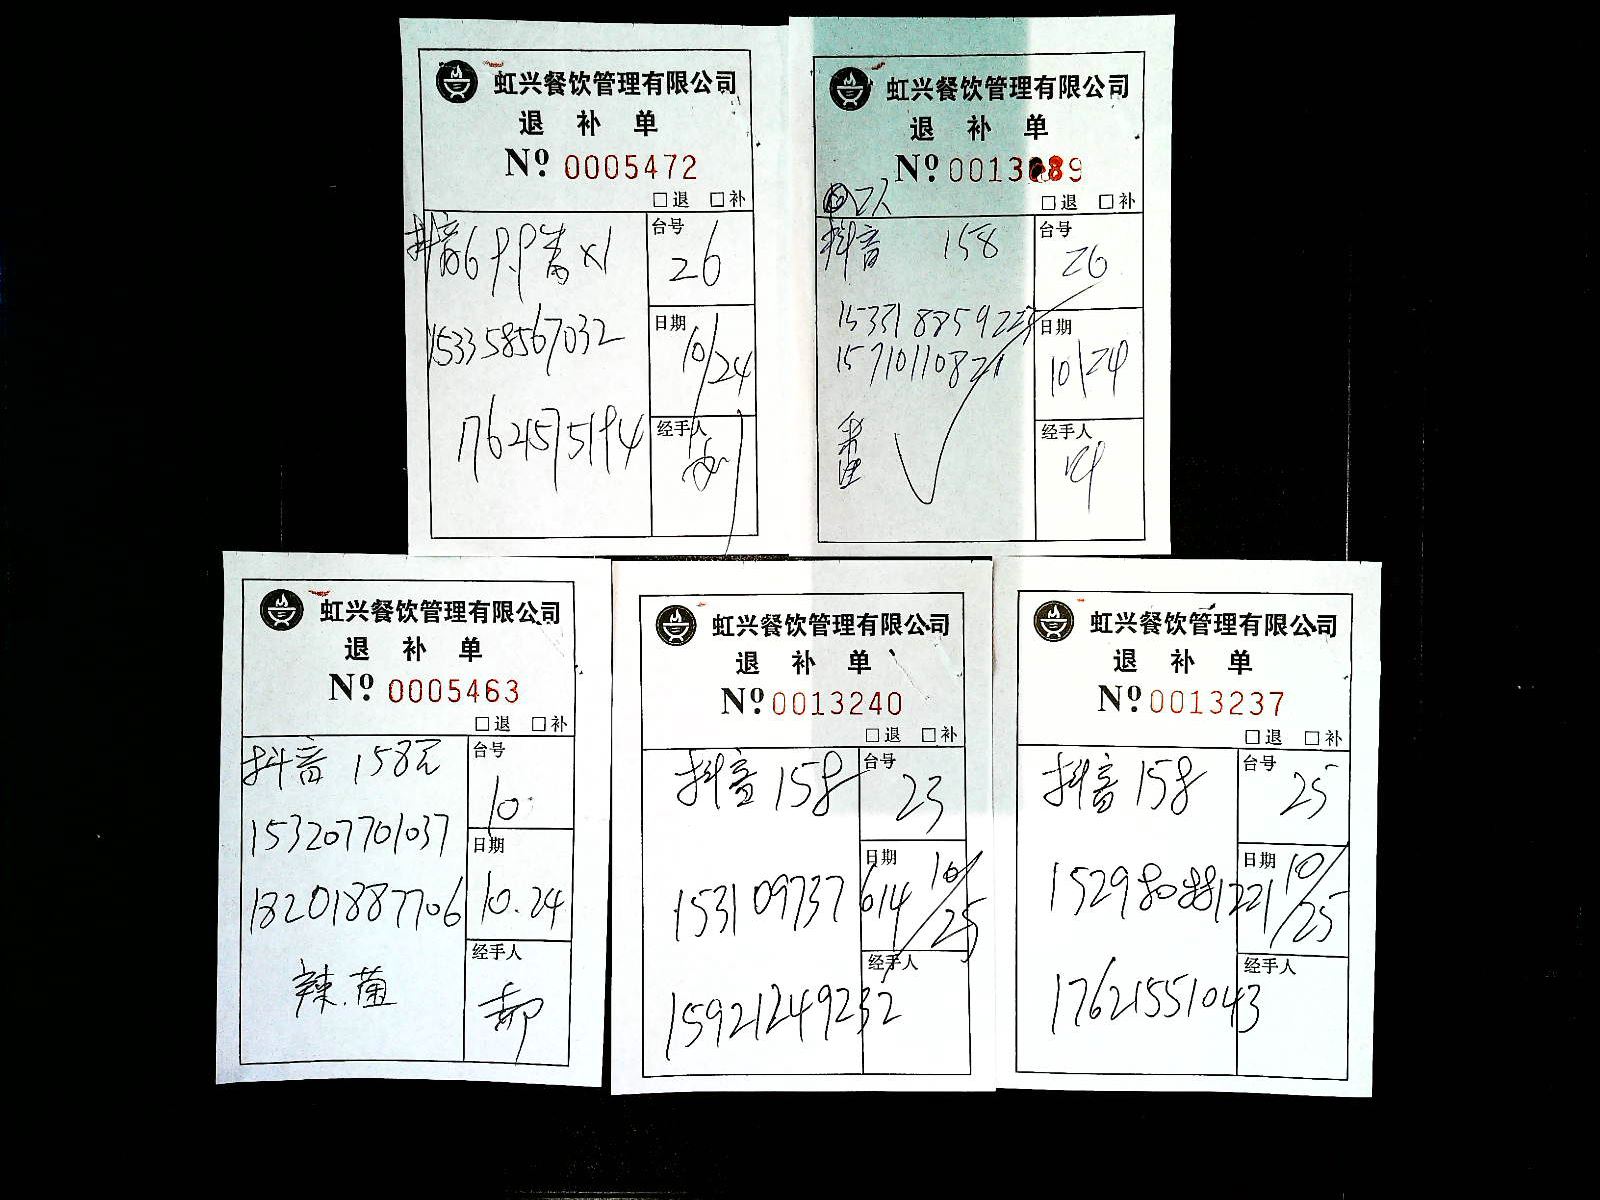 虹兴餐饮管理有限公司
退 补 单
Nº 0005472
□退 □补
抖音6 ×1
台号
26
153358567032
日期
10/24
17621575194
经手人
虹兴餐饮管理有限公司
退 补 单
Nº 0013089
□退 □补
2人
抖音 158
台号
26
日期
15710110821
10/24
经手人
番
虹兴餐饮管理有限公司
退 补 单
Nº 0005463
□退 □补
抖音 158元
台号
10
153207701037
日期
18201887706
10.24
辣.菌
经手人
郝
虹兴餐饮管理有限公司
退 补 单
Nº 0013240
□退 □补
抖音 158
台号
23
日期
10/25
153109737614
经手人
15921249232
虹兴餐饮管理有限公司
退 补 单
Nº 0013237
□退 □补
抖音 158
台号
25
日期
10/25
经手人
17621551043